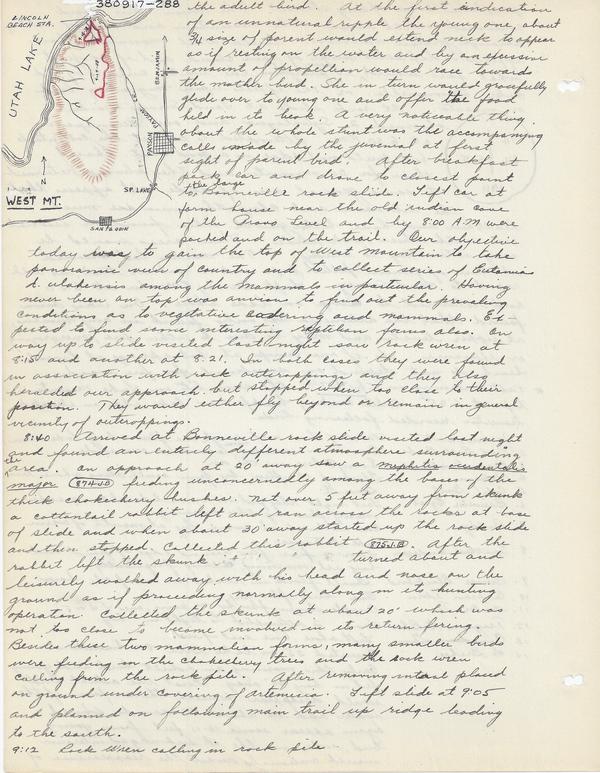 380917-288
LINCOLN
BEACH STA.
UTAH LAKE
BENJAMIN
PAYSON
PAYSON
SP. LAKE
N
WEST MT.
SANTAQUIN
the adult bird. At the first indication
of an unnatural ripple the young one, about
3/4 size of parent would extend neck to appear
as if resting on the water and by an
amount of propellian would race towards
the mother bird. She in turn would gracefully
glide over to young one and offer the food
held in its beak. A very noticeable thing
about the whole stunt was the accompanying
calls made by the juvenial at first
sight of parent bird. After breakfast
pack car and drove to closest point
to the large Bonneville rock slide. Left car at
farm house near the old indian cave
of the Provo Level and by 8:00 A.M were
packed and on the trail. Our objective
today was to gain the top of West Mountain to take
panoramic view of country and to collect series of Eutamias
d. utahensis among the mammals in particular. Having
never been on top was anxious to find out the prevailing
conditions as to vegetative covering and mammals. Ex-
pected to find some interesting reptilian forms also. On
way up to slide visited last night saw rock wren at
8:15 and another at 8:21. In both cases they were found
in association with rock outcroppings and they also
heralded our approach but stopped when too close to their
position. They would either fly beyond or remain in general
vicinity of outcroppings.
8:40 Arrived at Bonneville rock slide visited last night
and found an entirely different atmosphere surrounding
the area. On approach at 20' away saw a mephitis occidentalis
major (874-J.B) feeding unconcernedly among the bases of the
thick chokecherry bushes. Not over 5 feet away from skunk
a cottontail rabbit left and ran across the rocks at base
of slide and when about 30' away started up the rock slide
and then stopped. Collected this rabbit (875-J.B). After the
rabbit left the skunk turned about and
leisurely walked away with his head and nose on the
ground as if proceeding normally along in its hunting
operation. Collected the skunk at about 20' which was
not too close to become involved in its return firing.
Besides these two mammalian forms, many smaller birds
were feeding in the chokecherry trees and the rock wren
calling from the rock pile. After removing intact placed
on ground under covering of Artemesia. Left slide at 9:05
and planned on following main trail up ridge leading
to the south.
9:12 Rock Wren calling in rock pile